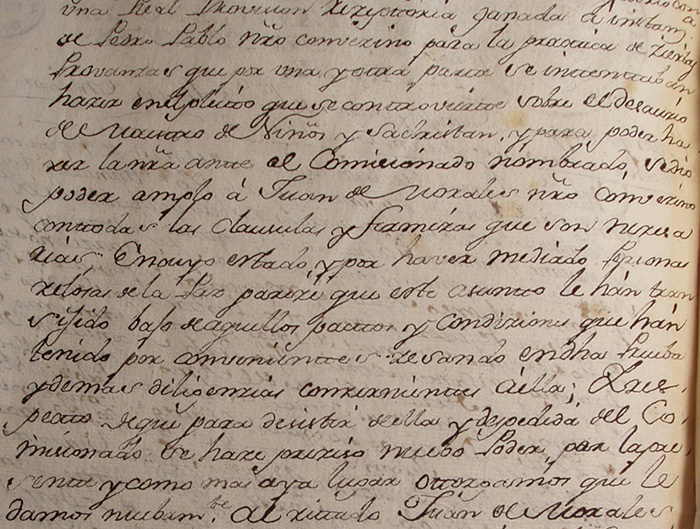 una Real Provision Rezeptoria ganada a instan.
de Pedro Pablo nr̃o comverino para la practica de Ziertas
Provanzas que por una y otra parte se intentaban
hazer en el pleito que se controvierte sobre el desaucio
de Maestro de Niños y Sachristan, y para poder ha
zer la nr̃a ante el Comisionado nombrado, se dio
poder amplo á Juan de Morales nr̃o comverino
con todas las clausulas y firmezas que son nezesa
rias. En cuyo estado, y por haver mediado Personas
zelosas de la Paz pareze que este asunto le hán tran
sijido bajo de aquellos pactos y condiziones que hán
tenido por combenientes zesando en dha Prueba
y demás diligenzias conzernientes á ella; Y res
pecto de que para desistir de ella y despedida del Co
misionado se haze preziso nuebo Poder, por la pre
sente y como mas aya lugar otorgamos que le
damos nuebam.te al zittado Juan de Morales